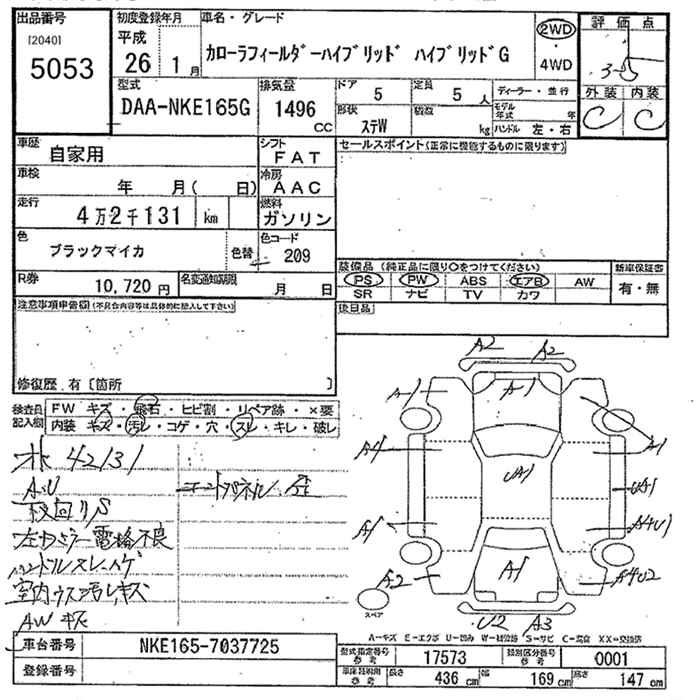 出品番号
[2040]
5053
初度登録年月
平成
26 1 月
車名・グレード
カローラフィールダーハイブリッド ハイブリッドG
2WD
・
4WD
評価点
3.5
外装 内装
C C
型式
DAA-NKE165G
排気量
1496
CC
ドア
5
定員
5 人
形状
ステW
積数
kg
ディーラー・並行
モデル年式 年
ハンドル 左・右
車歴
自家用
シフト
FAT
車検
年 月( 日)
冷房
AAC
走行
4万2千131 km
燃料
ガソリン
色
ブラックマイカ
色替
色コード
209
R券
10,720 円
名変通知期限
月 日
セールスポイント(正常に機能するものに限ります)
装備品(純正品に限り○をつけてください)
新車保証書
PS PW ABS エアB AW
SR ナビ TV カワ
有・無
後日品
注意事項申告欄(不具合内容等は具体的に記入して下さい)
修復歴.有〔箇所 〕
検査員記入欄
FW キズ・飛石・ヒビ割・リペア跡・×要
内装 キズ・汚レ・コゲ・穴・スレ・キレ・破レ
42131
A.U
左ドアミラー電格不良
ハンドルスレ、ハゲ
室内ウス汚レキズ
AWキズ
A2 A2
A1 A1
A1 A1
UA1 UA1
A1 A4U1
A2 A1 A4U2
U2 A3
スペア
A-キズ E-エクボ U-凹み W-補修跡 S-サビ C-腐食 XX-交換済
車台番号
NKE165-7037725
登録番号
型式指定番号 参考
17573
類別区分番号 参考
0001
車体諸元用 参考
長さ 436 cm
幅 169 cm
高さ 147 cm